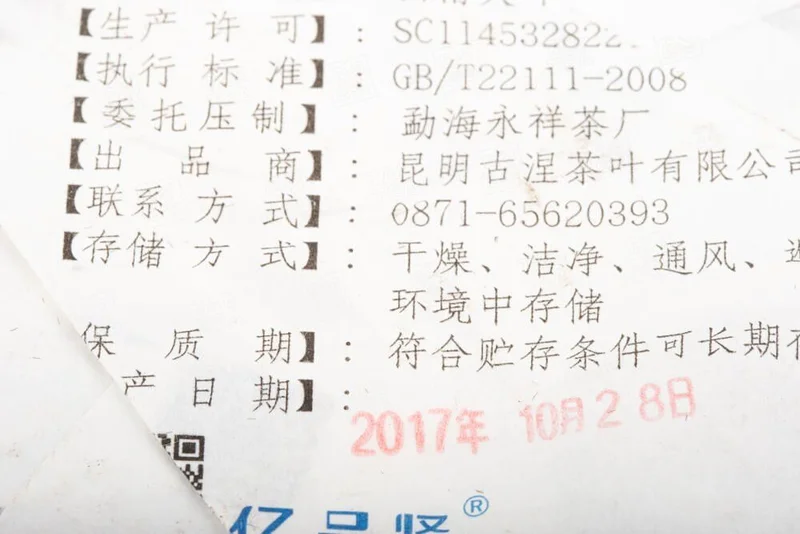 【生产许可】：SC11453282
【执行标准】：GB/T22111-2008
【委托压制】：勐海永祥茶厂
【出品商】：昆明古涅茶叶有限公司
【联系方式】：0871-65620393
【存储方式】：干燥、洁净、通风、
环境中存储
保质期】：符合贮存条件可长期存
产日期】：2017年 10月28日
亿品贤®